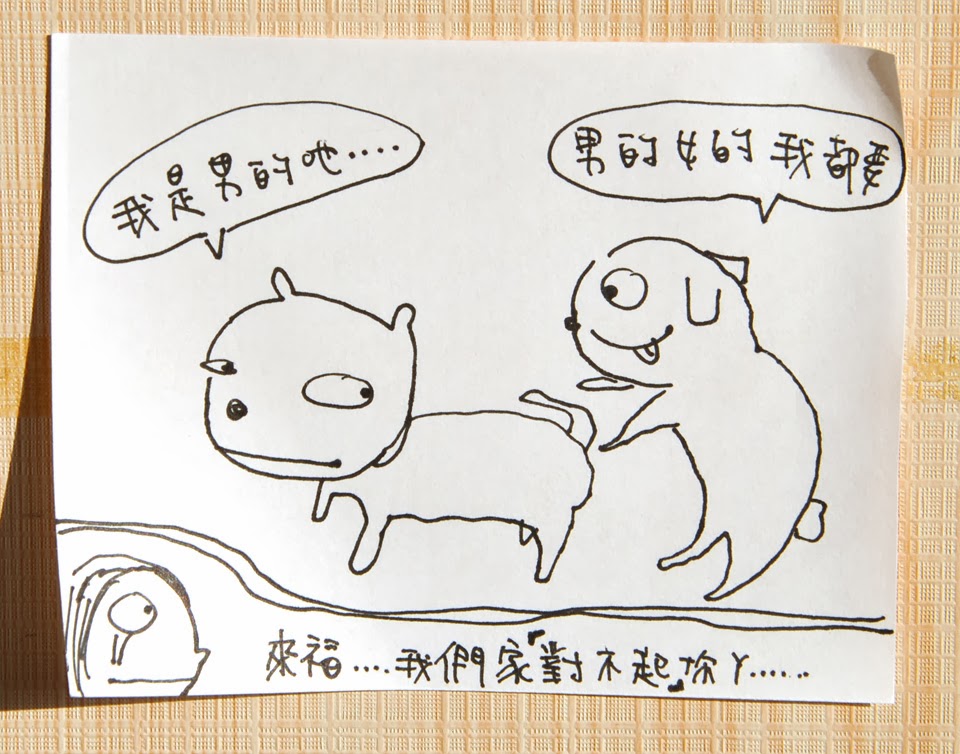 我是男的吔.....
男的女的我都要
來福....我們家『對不起』你丫......